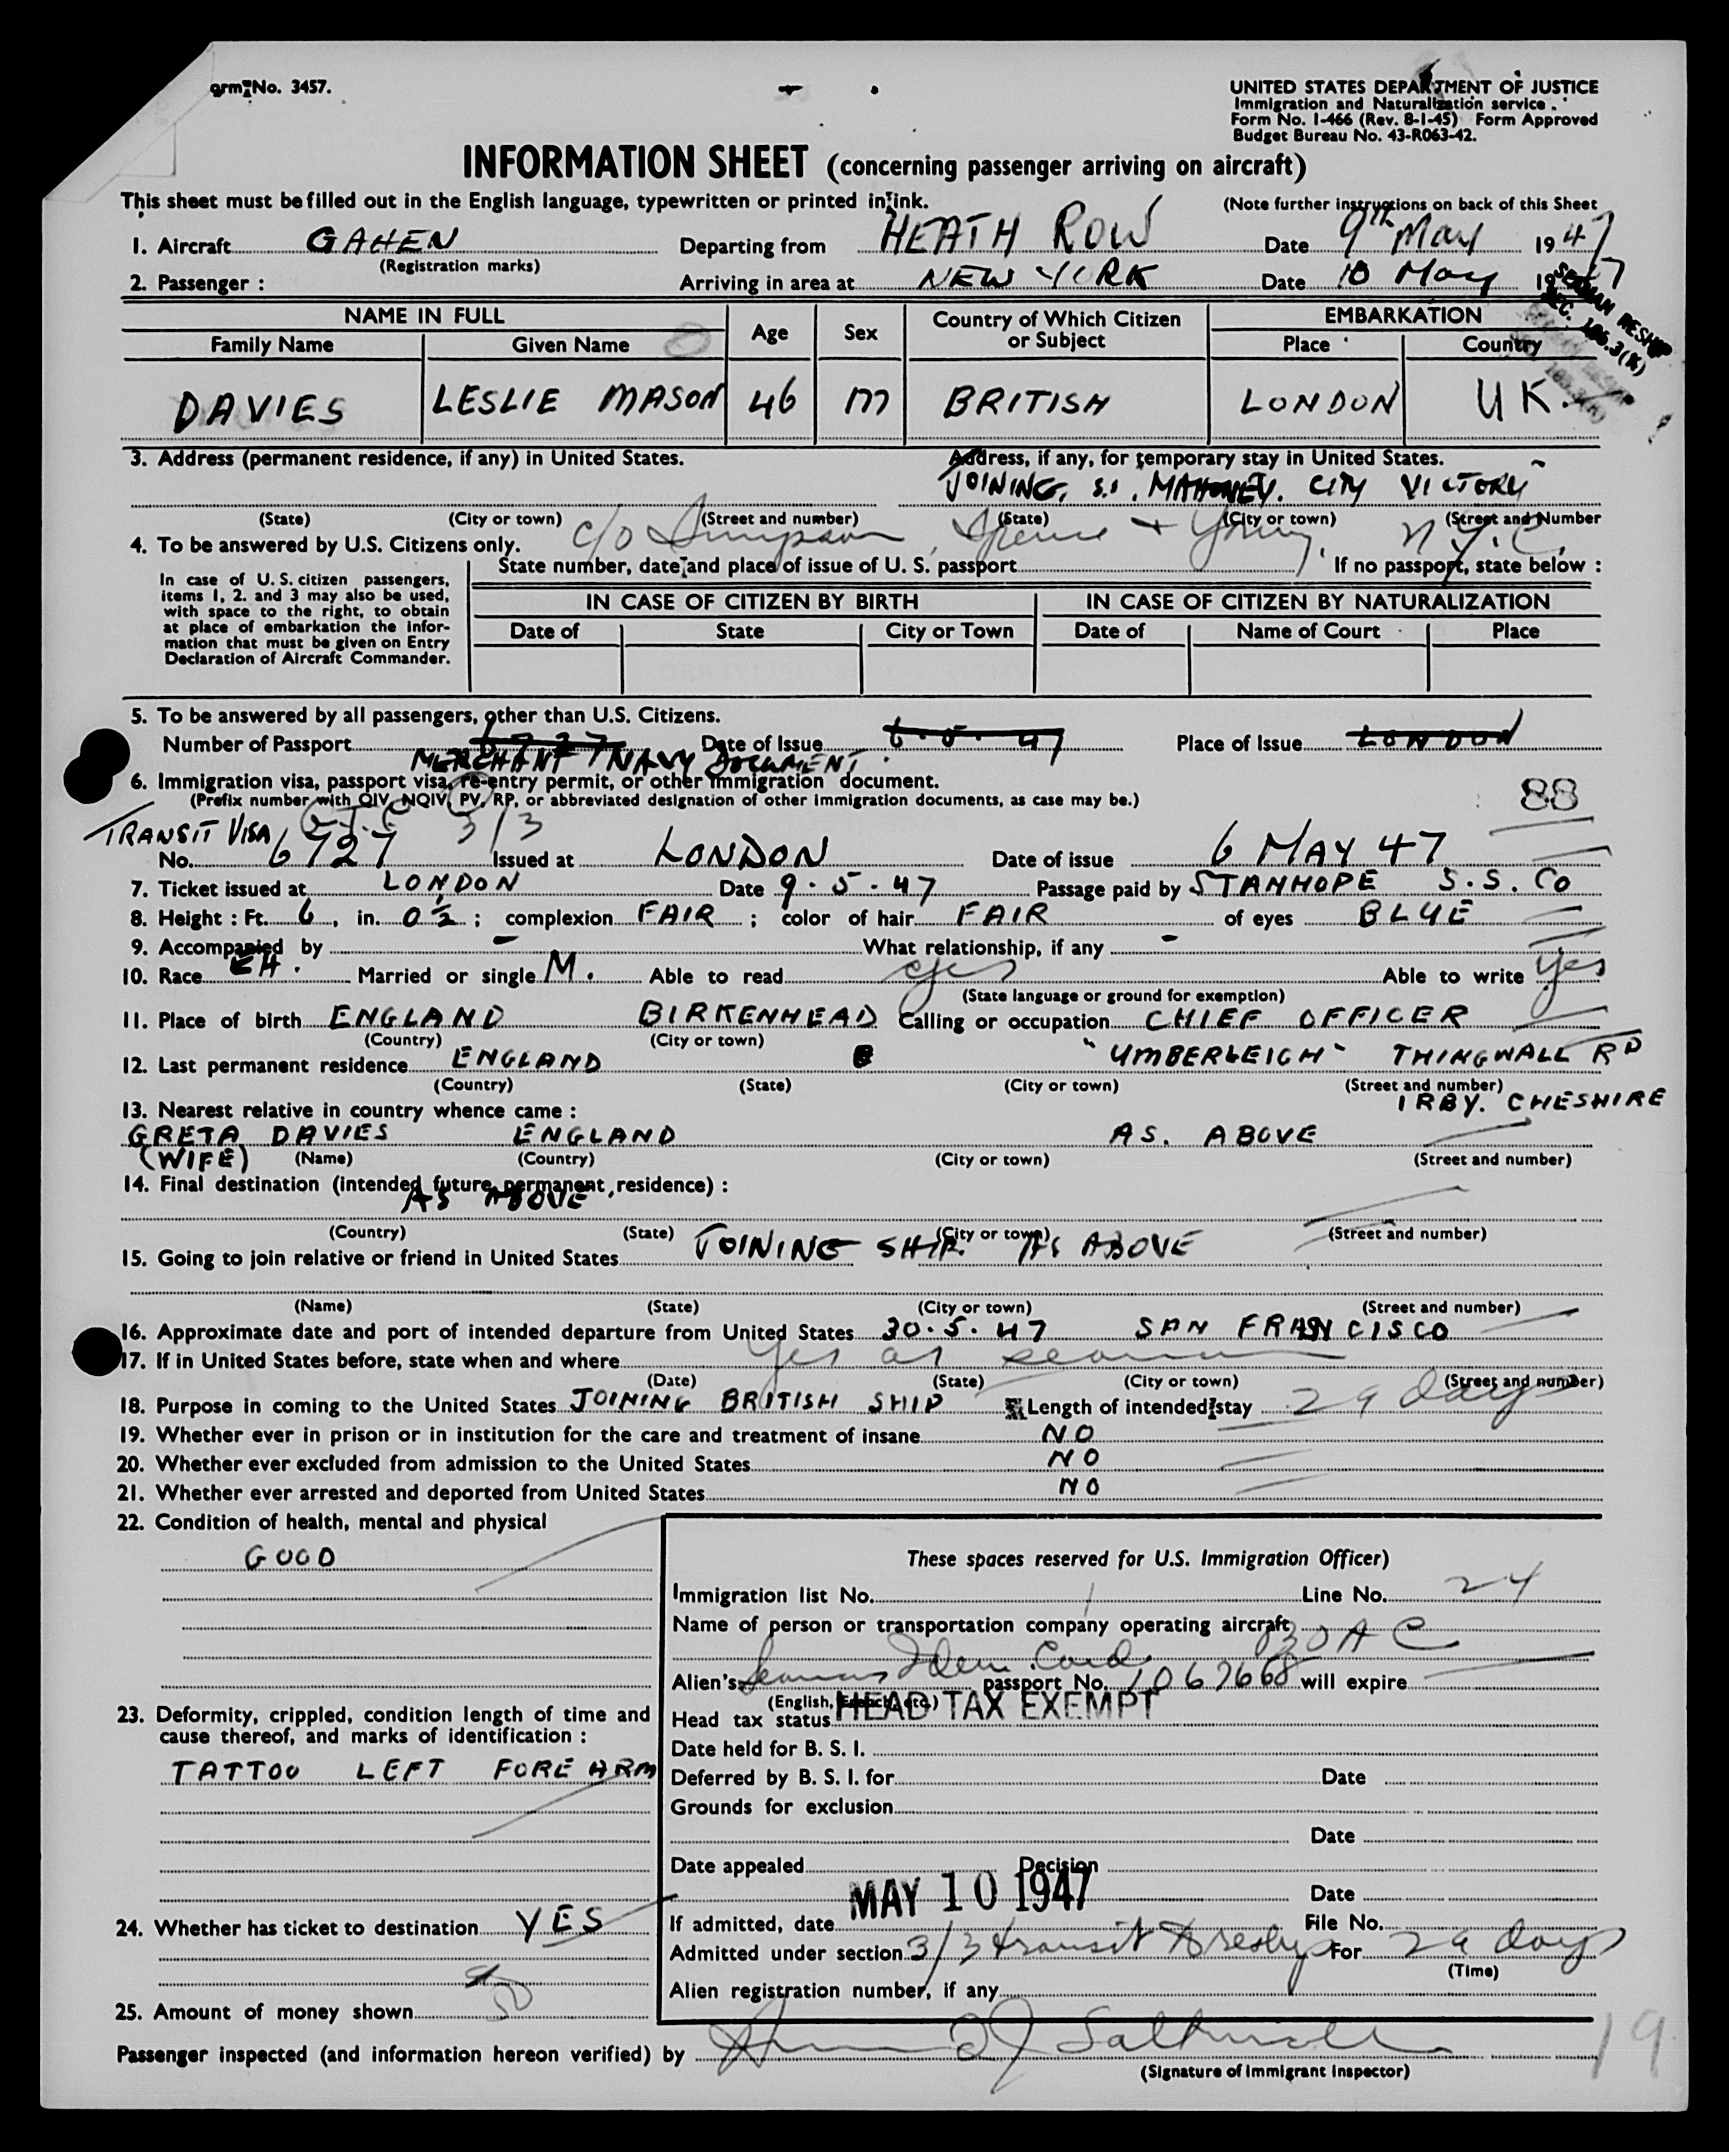 orm No. 3457.
UNITED STATES DEPARTMENT OF JUSTICE
Immigration and Naturalization service.
Form No. I-466 (Rev. 8-1-45) Form Approved
Budget Bureau No. 43-R063-42.
INFORMATION SHEET (concerning passenger arriving on aircraft)
This sheet must be filled out in the English language, typewritten or printed in ink.
(Note further instructions on back of this Sheet
1. Aircraft GAHEN Departing from HEATH ROW Date 9th May 1947
(Registration marks)
2. Passenger : Arriving in area at NEW YORK Date 10 May 1947
SEAMAN RESHIP
SEC. 106.3(K)
NAME IN FULL Age Sex Country of Which Citizen or Subject EMBARKATION
Family Name Given Name Place Country
DAVIES LESLIE MASON 46 M BRITISH LONDON UK.
3. Address (permanent residence, if any) in United States. Address, if any, for temporary stay in United States.
JOINING. S.S. MAHONEY. CITY VICTORY
(State) (City or town) (Street and number) (State) (City or town) (Street and Number
c/o Simpson, Spence + Young, N.Y.C.
4. To be answered by U.S. Citizens only.
State number, date and place of issue of U. S. passport If no passport, state below :
In case of U. S. citizen passengers,
items 1, 2. and 3 may also be used,
with space to the right, to obtain
at place of embarkation the infor-
mation that must be given on Entry
Declaration of Aircraft Commander.
IN CASE OF CITIZEN BY BIRTH IN CASE OF CITIZEN BY NATURALIZATION
Date of State City or Town Date of Name of Court Place
5. To be answered by all passengers, other than U.S. Citizens.
Number of Passport 6727 Date of Issue 6.5.47 Place of Issue LONDON
MERCHANT NAVY DOCUMENT.
6. Immigration visa, passport visa, re-entry permit, or other immigration document.
(Prefix number with QIV, NQIV, PV, RP, or abbreviated designation of other immigration documents, as case may be.)
88
TRANSIT VISA 3/3
No. 6727 Issued at LONDON Date of issue 6 MAY 47
7. Ticket issued at LONDON Date 9.5.47 Passage paid by STANHOPE S.S. Co
8. Height : Ft. 6, in. 0½ ; complexion FAIR ; color of hair FAIR of eyes BLUE
9. Accompanied by - What relationship, if any -
10. Race EH. Married or single M. Able to read yes Able to write yes
(State language or ground for exemption)
11. Place of birth ENGLAND BIRKENHEAD Calling or occupation CHIEF OFFICER
(Country) (City or town)
12. Last permanent residence ENGLAND "UMBERLEIGH" THINGWALL RD
(Country) (State) (City or town) (Street and number)
IRBY. CHESHIRE
13. Nearest relative in country whence came :
GRETA DAVIES ENGLAND AS. ABOVE
(WIFE) (Name) (Country) (City or town) (Street and number)
14. Final destination (intended future permanent residence) :
AS ABOVE
(Country) (State) (City or town) (Street and number)
15. Going to join relative or friend in United States JOINING SHIP. AS ABOVE
(Name) (State) (City or town) (Street and number)
16. Approximate date and port of intended departure from United States 30.5.47 SAN FRANCISCO
17. If in United States before, state when and where Yes as seaman
(Date) (State) (City or town) (Street and number)
18. Purpose in coming to the United States JOINING BRITISH SHIP Length of intended stay 29 days
19. Whether ever in prison or in institution for the care and treatment of insane NO
20. Whether ever excluded from admission to the United States NO
21. Whether ever arrested and deported from United States NO
22. Condition of health, mental and physical
GOOD
23. Deformity, crippled, condition length of time and
cause thereof, and marks of identification :
TATTOO LEFT FORE ARM
24. Whether has ticket to destination YES
25. Amount of money shown 50
These spaces reserved for U.S. Immigration Officer)
Immigration list No. 1 Line No. 24
Name of person or transportation company operating aircraft BOAC
Alien's Seamans Iden. Card passport No. 1067668 will expire
(English, French, etc.)
Head tax status HEAD TAX EXEMPT
Date held for B. S. I.
Deferred by B. S. I. for Date
Grounds for exclusion
Date
Date appealed Decision
MAY 10 1947
Date
If admitted, date File No.
Admitted under section 3/3 transit For 29 days
(Time)
Alien registration number, if any
Passenger inspected (and information hereon verified) by
(Signature of Immigrant Inspector)
19